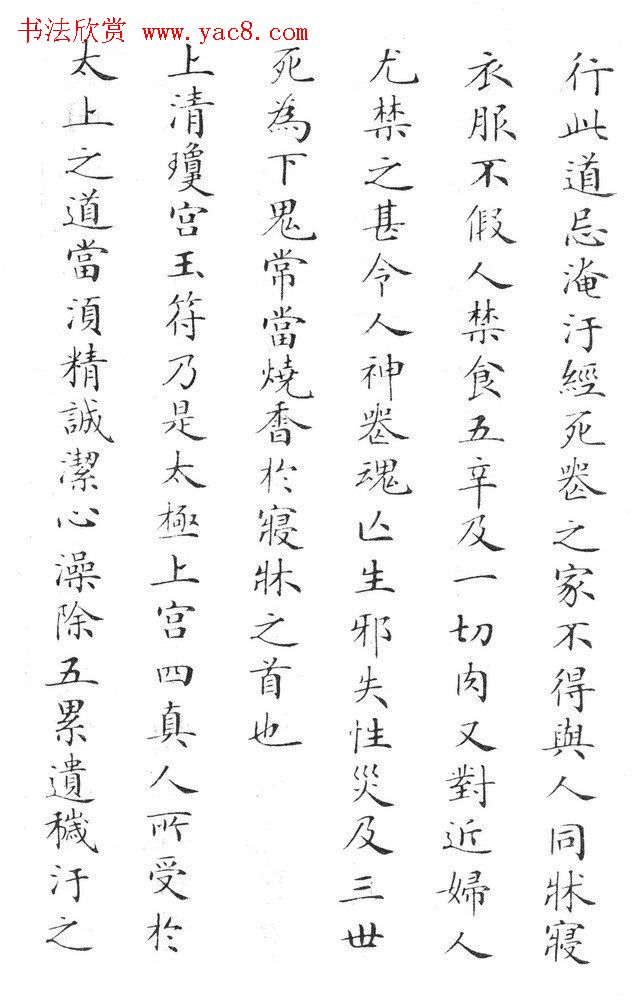 书法欣赏 www.yac8.com
行此道忌淹汙經死喪之家不得與人同牀寢
衣服不假人禁食五辛及一切肉又對近婦人
尤禁之甚令人神喪魂亾生邪失性災及三世
死為下鬼常當燒香於寢牀之首也
上清瓊宫玉符乃是太極上宫四真人所受於
太上之道當須精誠潔心澡除五累遺穢汙之